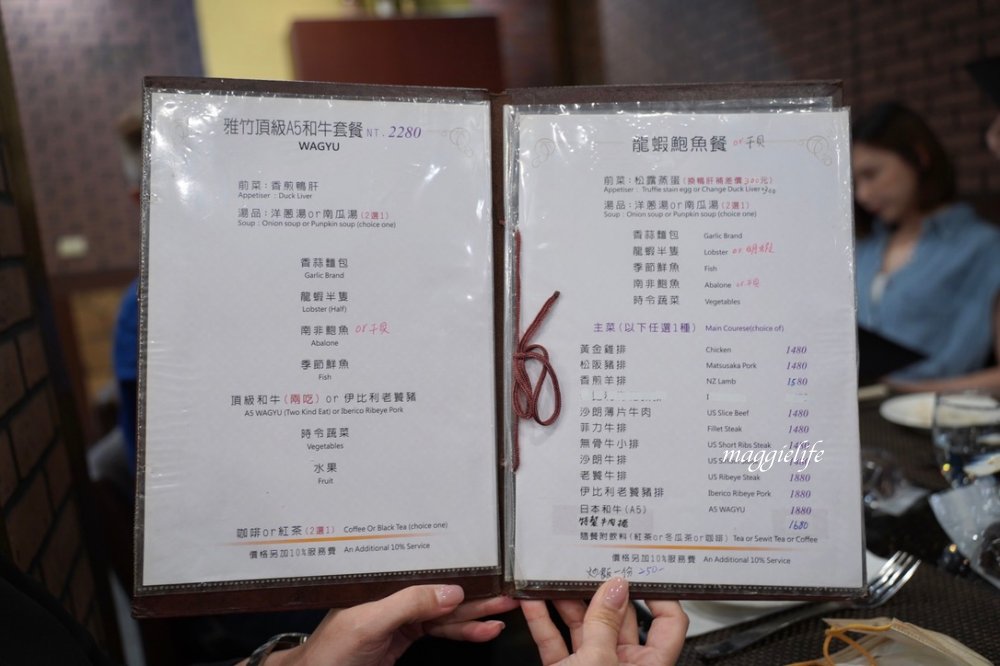 雅竹頂級A5和牛套餐 NT. 2280
WAGYU
前菜:香煎鴨肝
Appetiser : Duck Liver
湯品:洋蔥湯or南瓜湯(2選1)
Soup : Onion soup or Punpkin soup (choice one)
香蒜麵包
Garlic Brand
龍蝦半隻
Lobster (Half)
南非鮑魚 or 干貝
Abalone
季節鮮魚
Fish
頂級和牛(兩吃) or 伊比利老饕豬
A5 WAGYU (Two Kind Eat) or Iberico Ribeye Pork
時令蔬菜
Vegetables
水果
Fruit
咖啡or紅茶(2選1) Coffee Or Black Tea (choice one)
價格另加10%服務費 An Additional 10% Service
龍蝦鮑魚餐 or 干貝
前菜:松露蒸蛋(換鴨肝補差價300元)
Appetiser : Truffle stain egg or Change Duck Liver+300
湯品:洋蔥湯or南瓜湯(2選1)
Soup : Onion soup or Punpkin soup (choice one)
香蒜麵包 Garlic Brand
龍蝦半隻 Lobster or 明蝦
季節鮮魚 Fish
南非鮑魚 Abalone or 干貝
時令蔬菜 Vegetables
主菜(以下任選1種) Main Courese(choice of)
黃金雞排 Chicken 1480
松阪豬排 Matsusaka Pork 1480
香煎羊排 NZ Lamb 1580
沙朗薄片牛肉 US Slice Beef 1480
菲力牛排 Fillet Steak 1480
無骨牛小排 US Short Ribs Steak 1480
沙朗牛排 US
老饕牛排 US Ribeye Steak 1880
伊比利老饕豬排 Iberico Ribeye Pork 1880
日本和牛(A5) A5 WAGYU 1880
特製牛肉捲 1680
隨餐附飲料(紅茶or冬瓜茶or咖啡) Tea or Sewit Tea or Coffee
價格另加10%服務費 An Additional 10% Service
炒飯一份 250-
maggielife